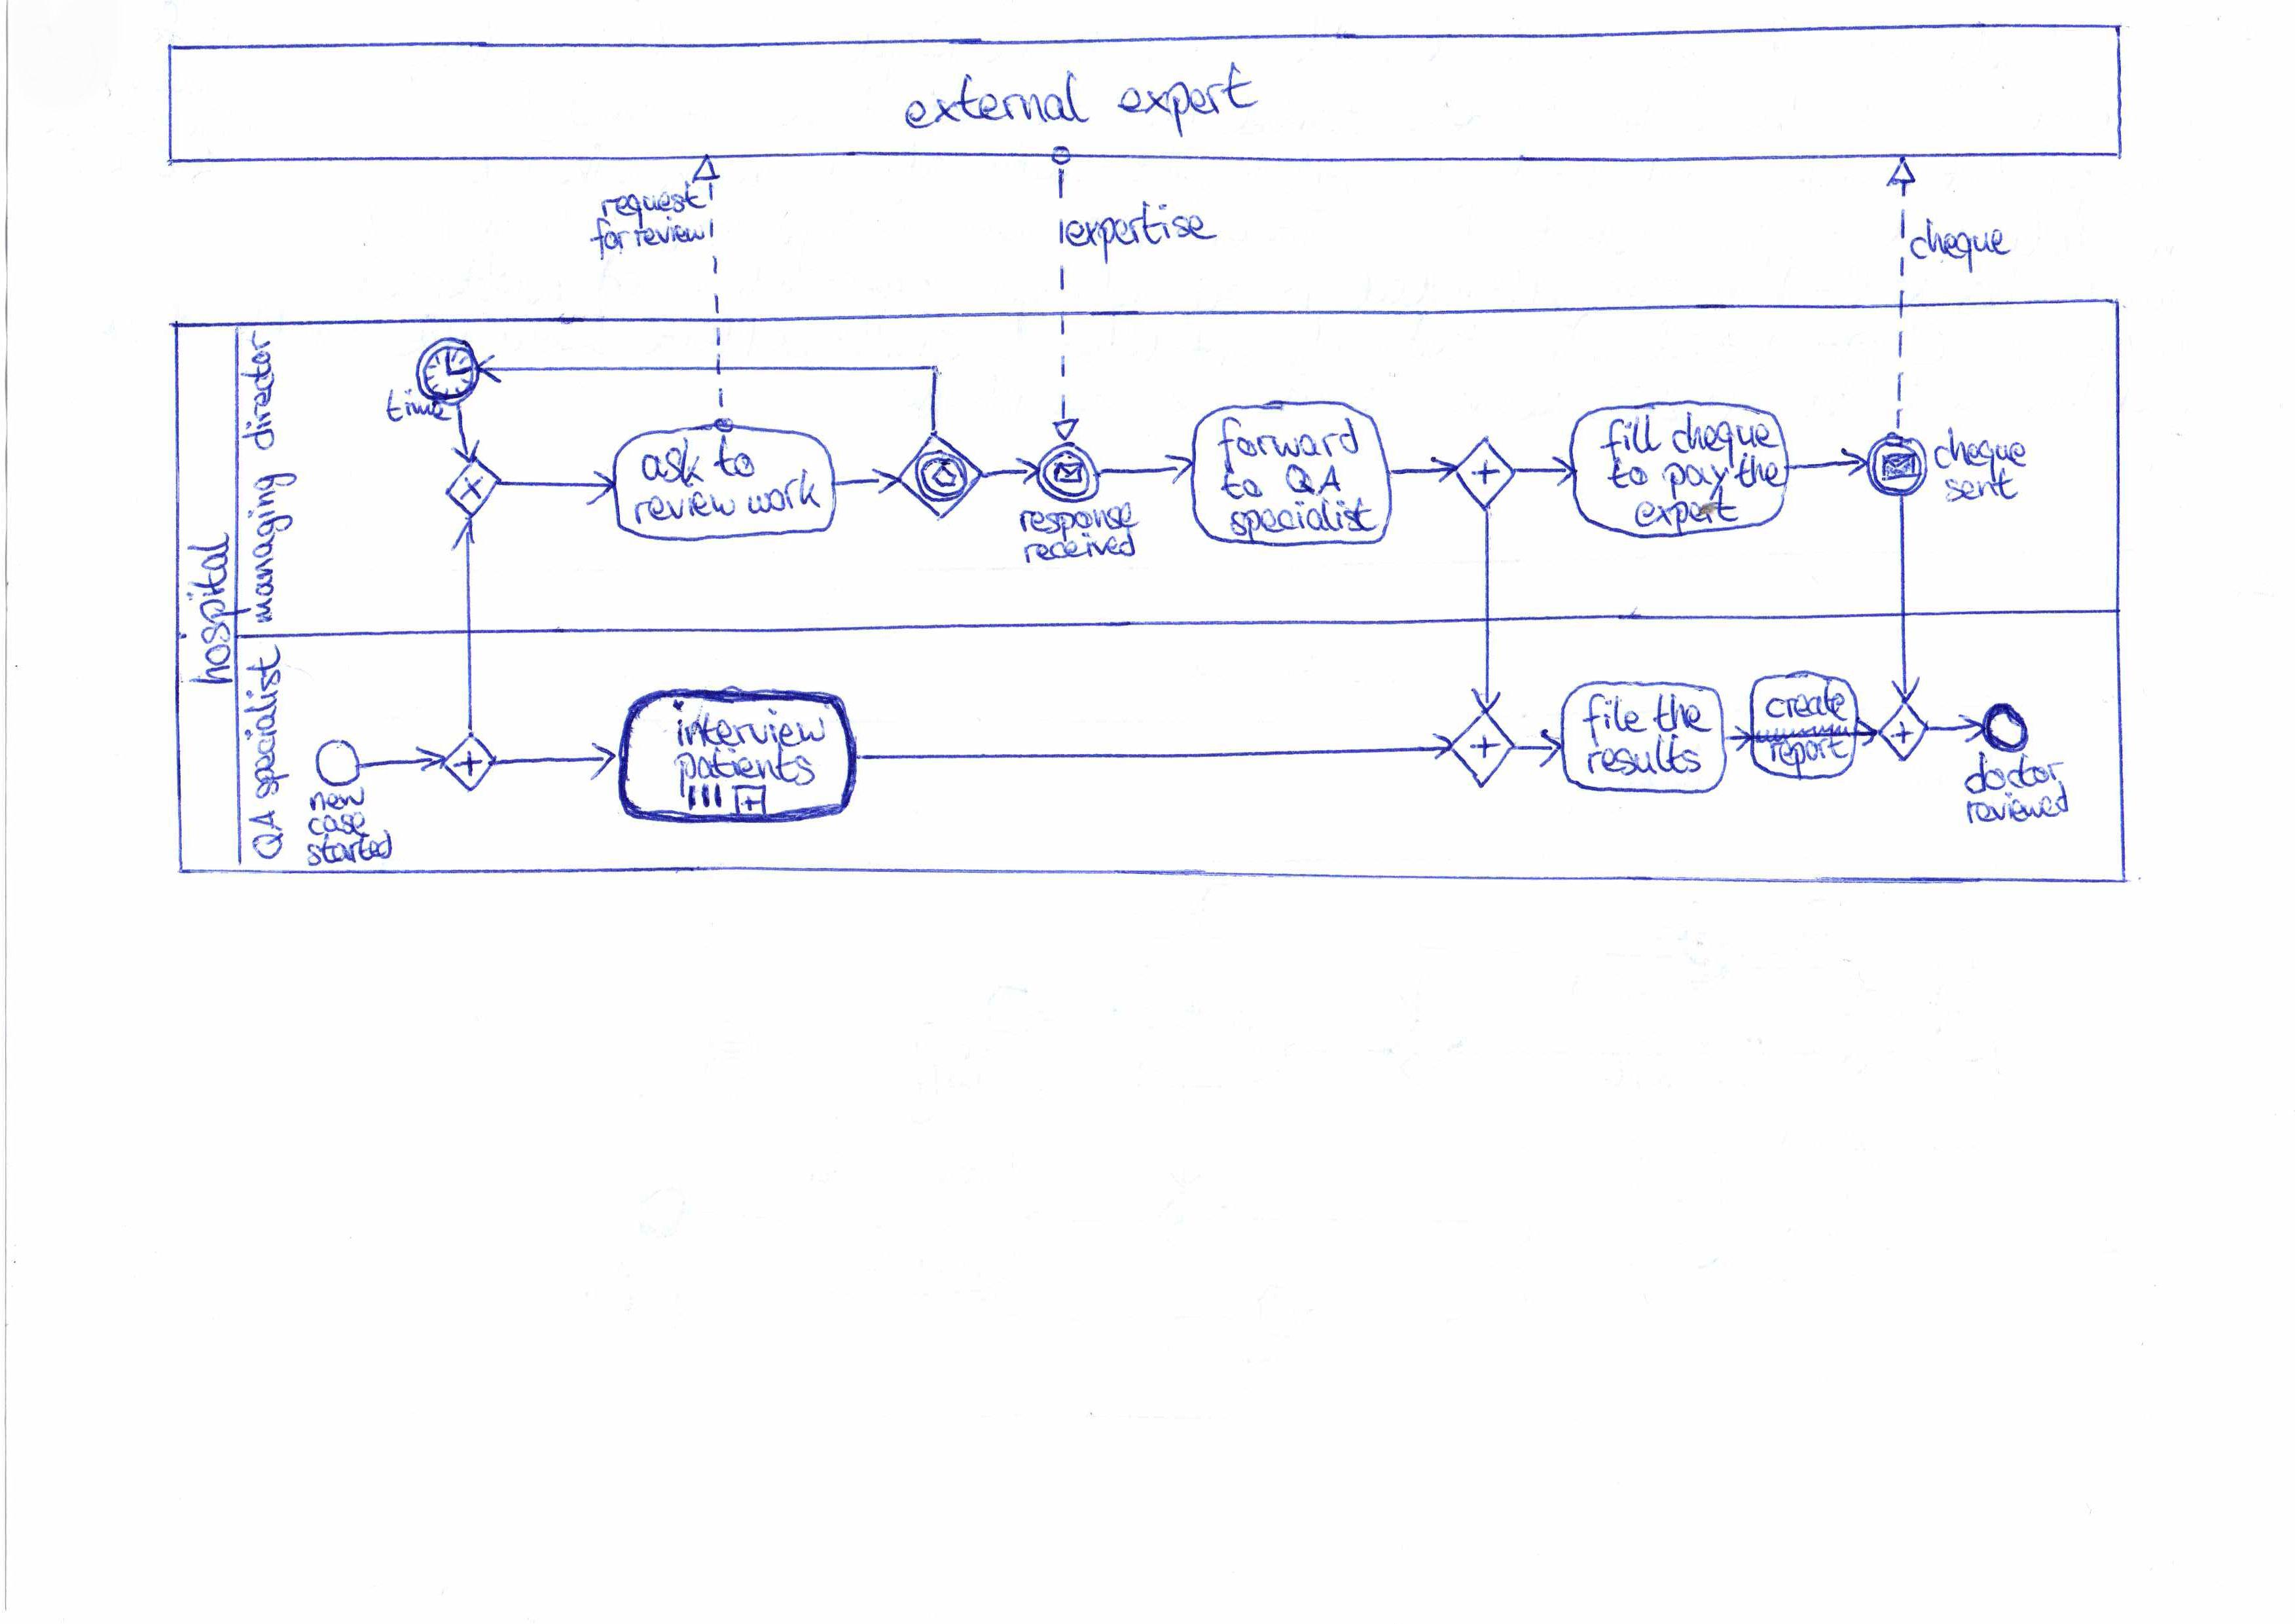 external expert
request
for review
expertise
cheque
hospital
managing director
time
ask to
review work
response
received
forward
to QA
specialist
fill cheque
to pay the
expert
cheque
sent
QA specialist
new
case
started
interview
patients
file the
results
create
report
doctor
reviewed